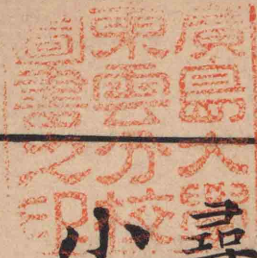 廣島大學
東雲分校
圖書之印
尋
小